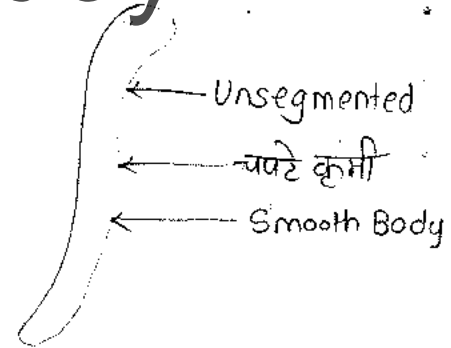 Unsegmented
चपटे कृमी
Smooth Body